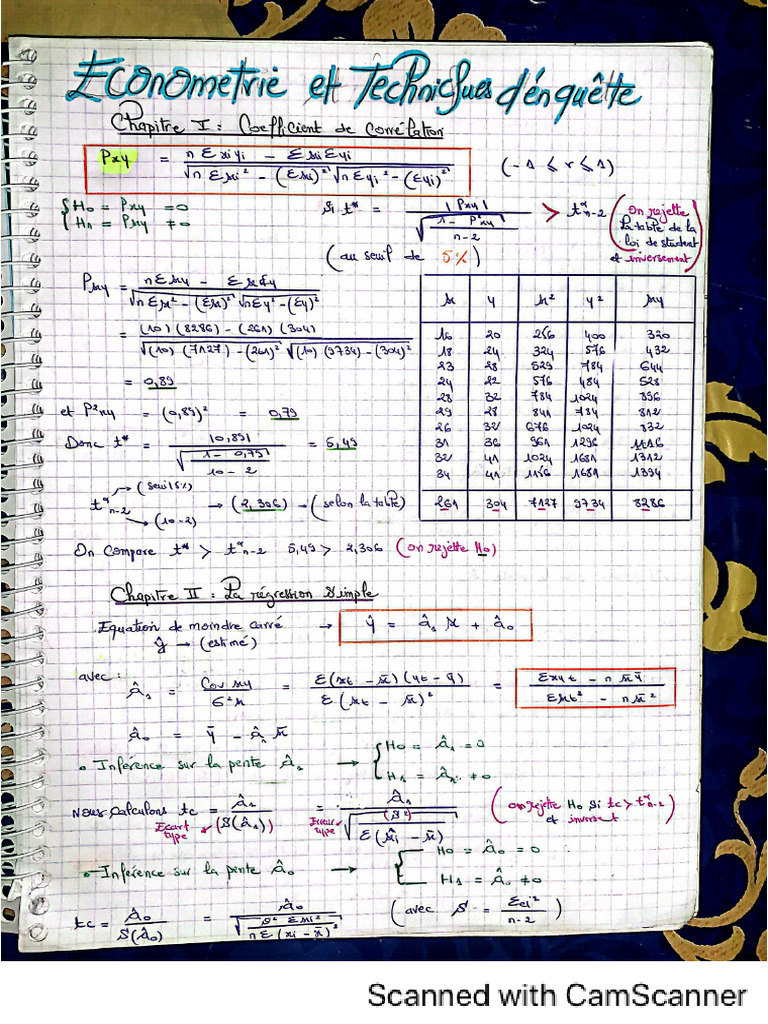 Econometrie et Techniques d'énquête
Chapitre I : Coefficient de corrélation
Pxy = nΣxiyi - Σxi Σyi / √nΣxi² - (Σxi)² √nΣyi² - (Σyi)² (-1 ≤ r ≤ 1)
{ H0 = Pxy = 0
{ H1 = Pxy ≠ 0
Si t* = |Pxy| / √(1 - P²xy / n-2) > tᵅn-2 (on rejette
la table de la
loi de student
et inversement)
(au seuil de 5%)
Pxy = nΣxy - ΣxΣy / √nΣx² - (Σx)² √nΣy² - (Σy)²
= (10)(8286) - (261)(304) / √(10)(7127) - (261)² √(10)(9734) - (304)²
= 0,89
et P²xy = (0,89)² = 0,79
Donc t* = |0,89| / √(1 - 0,79 / 10 - 2) = 5,49
tᵅn-2 → (seuil 5%) → (10-2) → (2,306) → (selon la table)
x y x² y² xy
16 20 256 400 320
18 24 324 576 432
23 28 529 784 644
24 22 576 484 528
28 32 784 1024 896
29 28 841 784 812
26 32 676 1024 832
31 36 961 1296 1116
32 41 1024 1681 1312
34 41 1156 1681 1394
261 304 7127 9734 8286
On Compare t* > tᵅn-2 5,49 > 2,306 (on rejette H0)
Chapitre II : La régression simple
Equation de moindre carré → ŷ = â1 x + â0
ŷ → (estimé)
avec : â1 = Cov xy / σ²x = Σ(xt - x̄)(yt - ȳ) / Σ(xt - x̄)² = Σxyt - n x̄ȳ / Σxt² - n x̄²
â0 = ȳ - â1 x̄
• Inférence sur la pente â1 → { H0 = â1 = 0
{ H1 = â1 ≠ 0
Nous calculons tc = â1 / (S(â1)) = â1 / √((S²) / Σ(xi - x̄)) (on rejette H0 si tc > tᵅn-2
et inverst)
Ecart type
Erreur type
• Inférence sur la pente â0 → { H0 = â0 = 0
{ H1 = â0 ≠ 0
tc = â0 / S(â0) = â0 / √(S² Σxi² / nΣ(xi - x̄)²) (avec S = Σei² / n-2)
Scanned with CamScanner